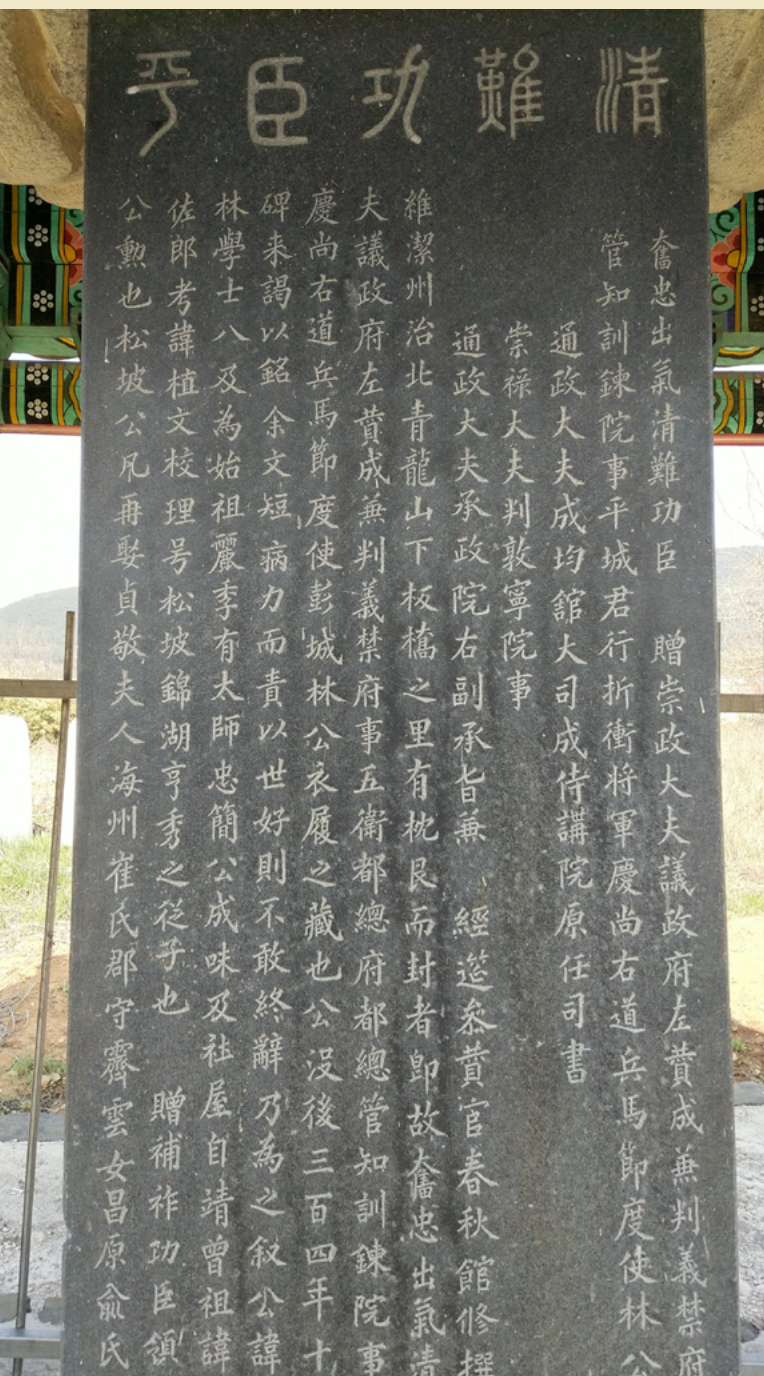 清難功臣平
奮忠出氣清難功臣 贈崇政大夫議政府左賛成兼判義禁府
管知訓鍊院事平城君行折衝將軍慶尚右道兵馬節度使林公
通政大夫成均舘大司成侍講院原任司書
崇祿大夫判敦寧院事
通政大夫承政院右副承旨兼 經筵叅賛官春秋館修撰
維潔州治北青龍山下板橋之里有枕艮而封者即故奮忠出氣清
夫議政府左賛成兼判義禁府事五衛都總府都總管知訓鍊院事
慶尚右道兵馬節度使彭城林公衣履之藏也公沒後三百四年十
碑来謁以銘余文短病力而責以世好則不敢終辭乃為之叙公諱
林學士八及為始祖麗季有太師忠簡公成味及社屋自靖曾祖諱
佐郎考諱植文校理号松坡錦湖亨秀之從子也 贈補祚功臣領
公勳也松坡公凡再娶貞敬夫人海州崔氏郡守霽雲女昌原俞氏